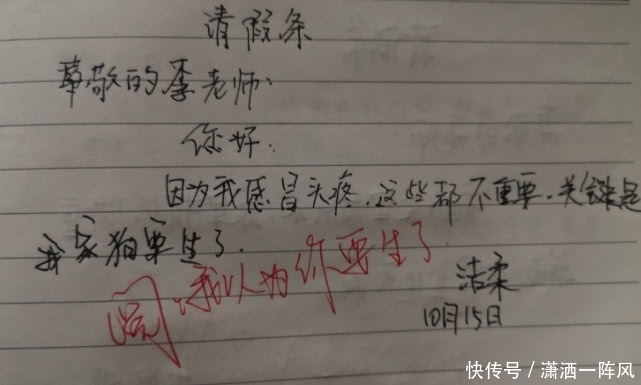 请假条
尊敬的李老师:
你好.
因为我感冒头疼.这些都不重要.关键是
我家狗要生了.
阅,我以为你要生了
洁柔
10月15日
快传号/潇洒一阵风